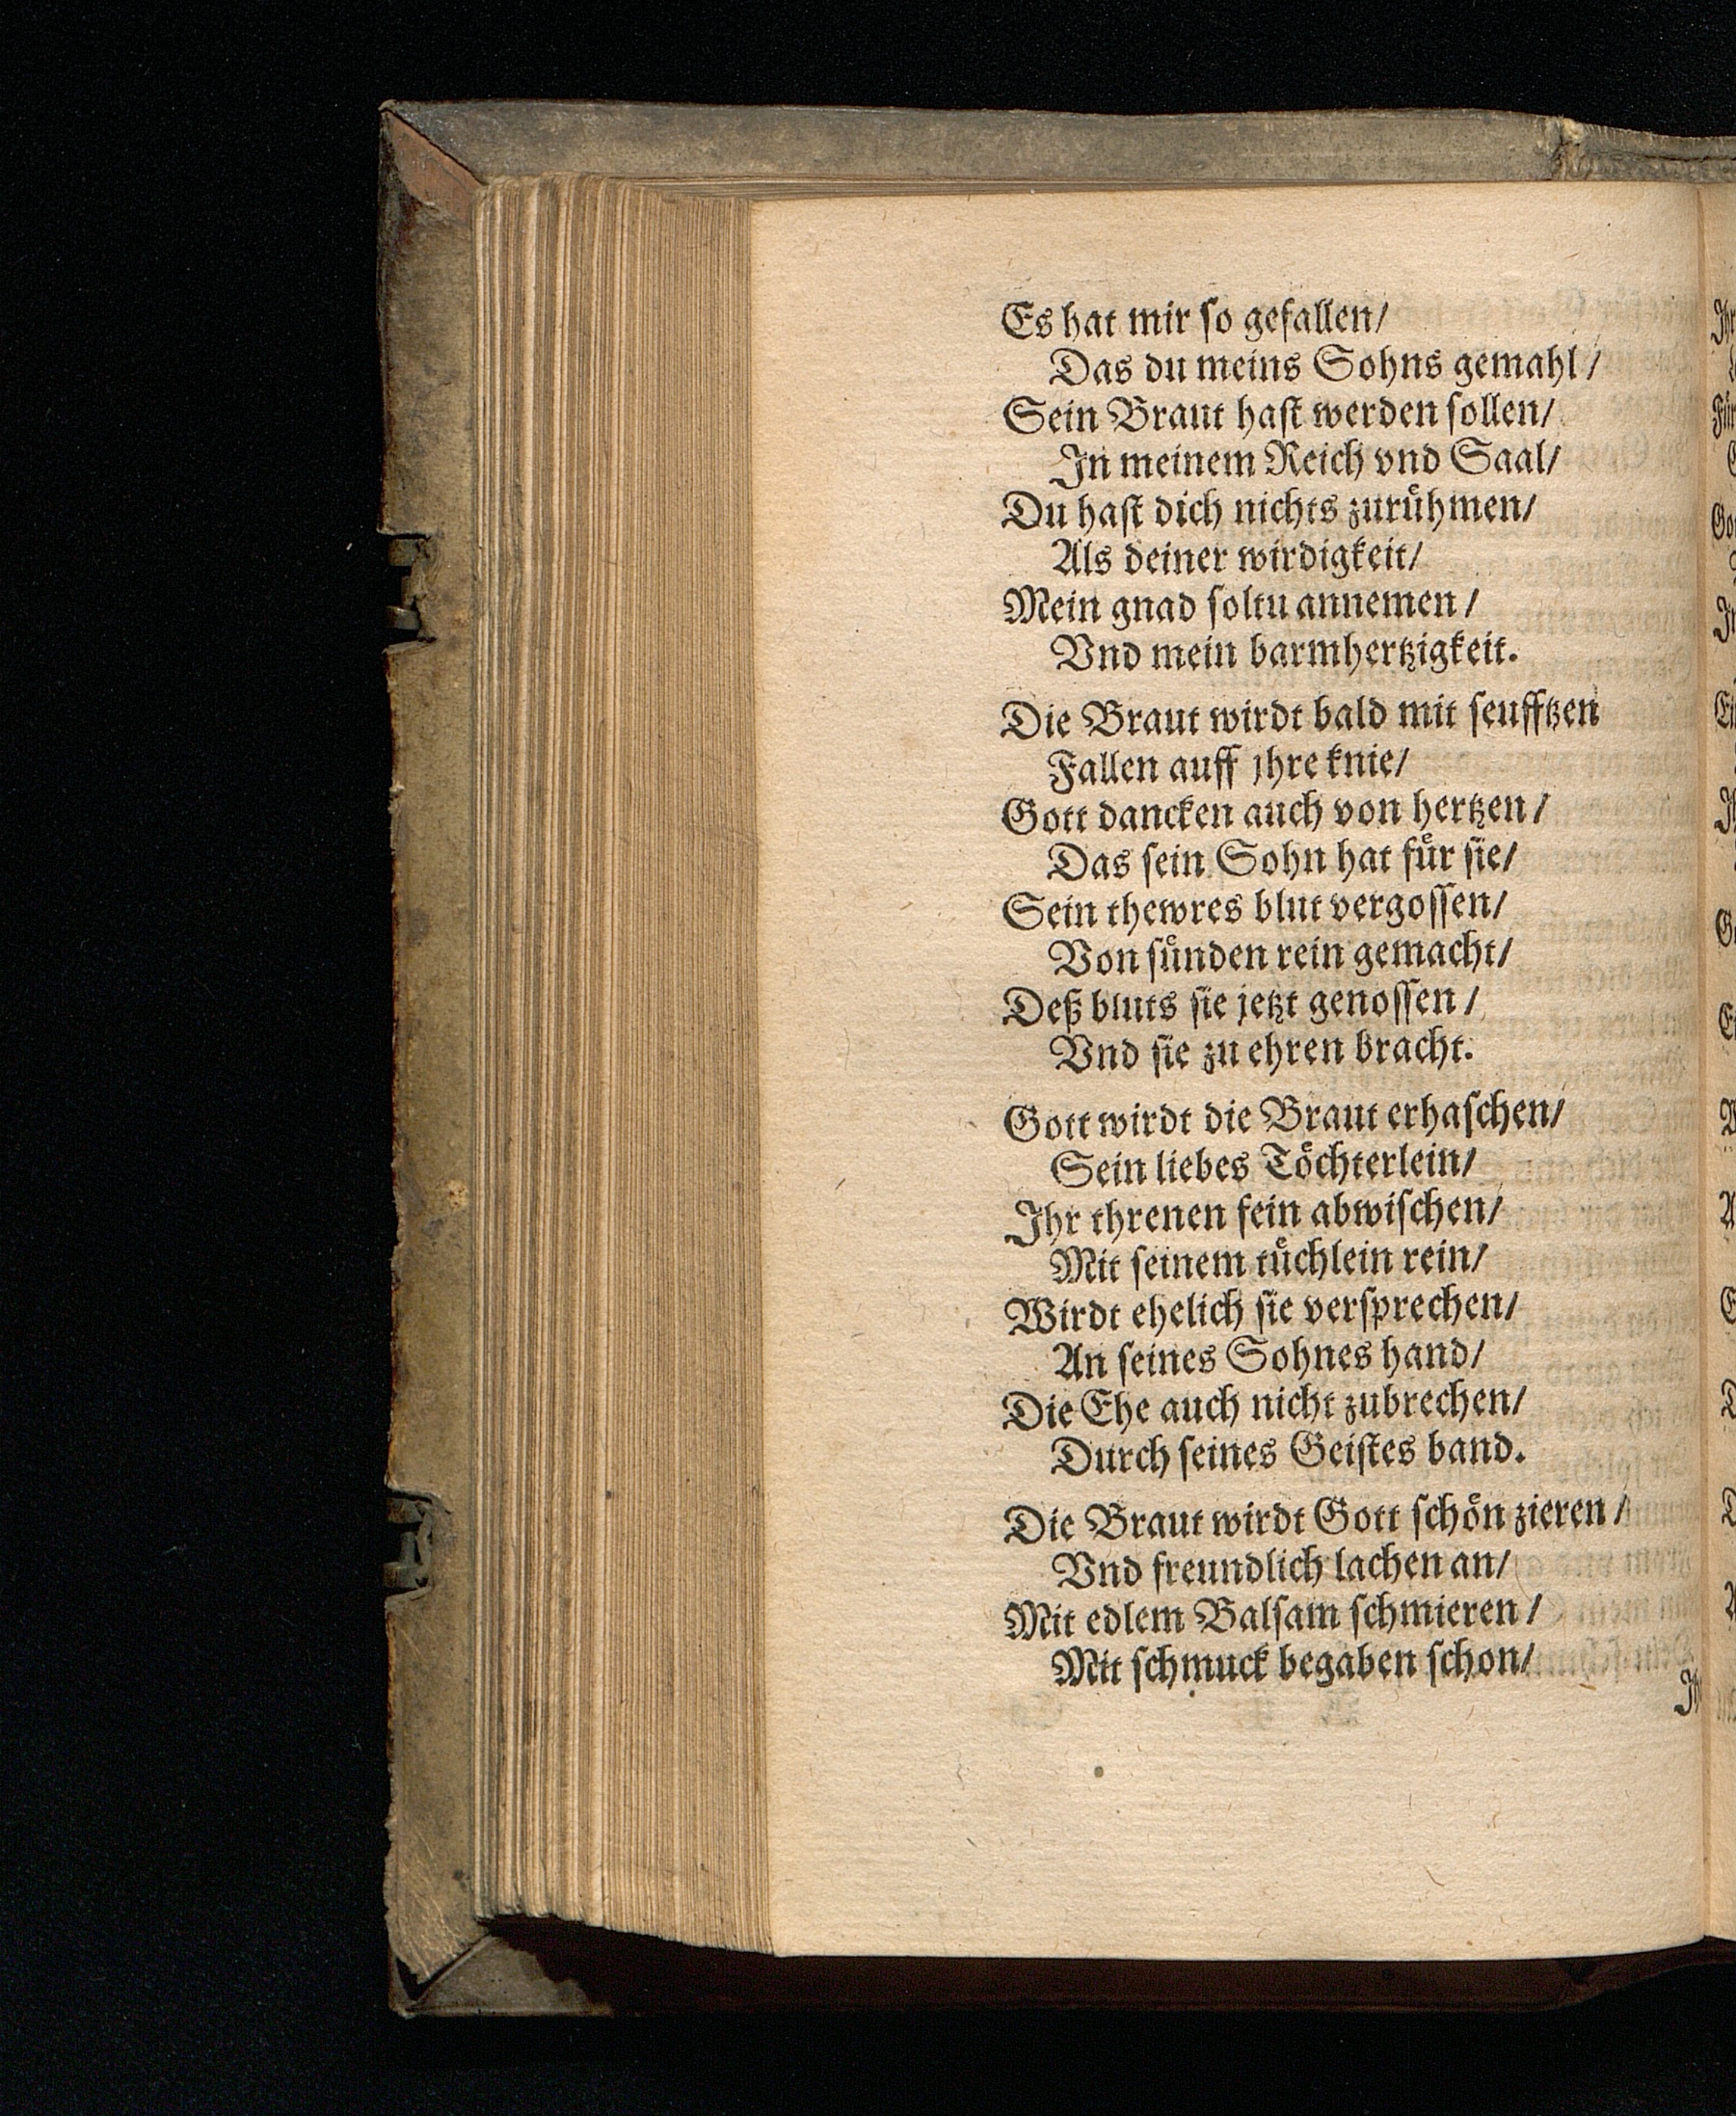 Es hat mir ſo gefallen/
Das du meins Sohns gemahl/
Sein Braut haſt werden ſollen/
In meinem Reich vnd Saal/
Du haſt dich nichts zuruͤhmen/
Als deiner wirdigkeit/
Mein gnad ſoltu annemen/
Vnd mein barmhertzigkeit.
Die Braut wirdt bald mit ſeufftzen
Fallen auff jhre knie/
Gott dancken auch von hertzen/
Das ſein Sohn hat fuͤr ſie/
Sein thewres blut vergoſſen/
Von ſuͤnden rein gemacht/
Deß bluts ſie jetzt genoſſen/
Vnd ſie zu ehren bracht.
Gott wirdt die Braut erhaſchen/
Sein liebes Toͤchterlein/
Ihr threnen fein abwiſchen/
Mit ſeinem tuͤchlein rein/
Wirdt ehelich ſie verſprechen/
An ſeines Sohnes hand/
Die Ehe auch nicht zubrechen/
Durch ſeines Geiſtes band.
Die Braut wirdt Gott ſchoͤn zieren/
Vnd freundlich lachen an/
Mit edlem Balſam ſchmieren/
Mit ſchmuck begaben ſchon/